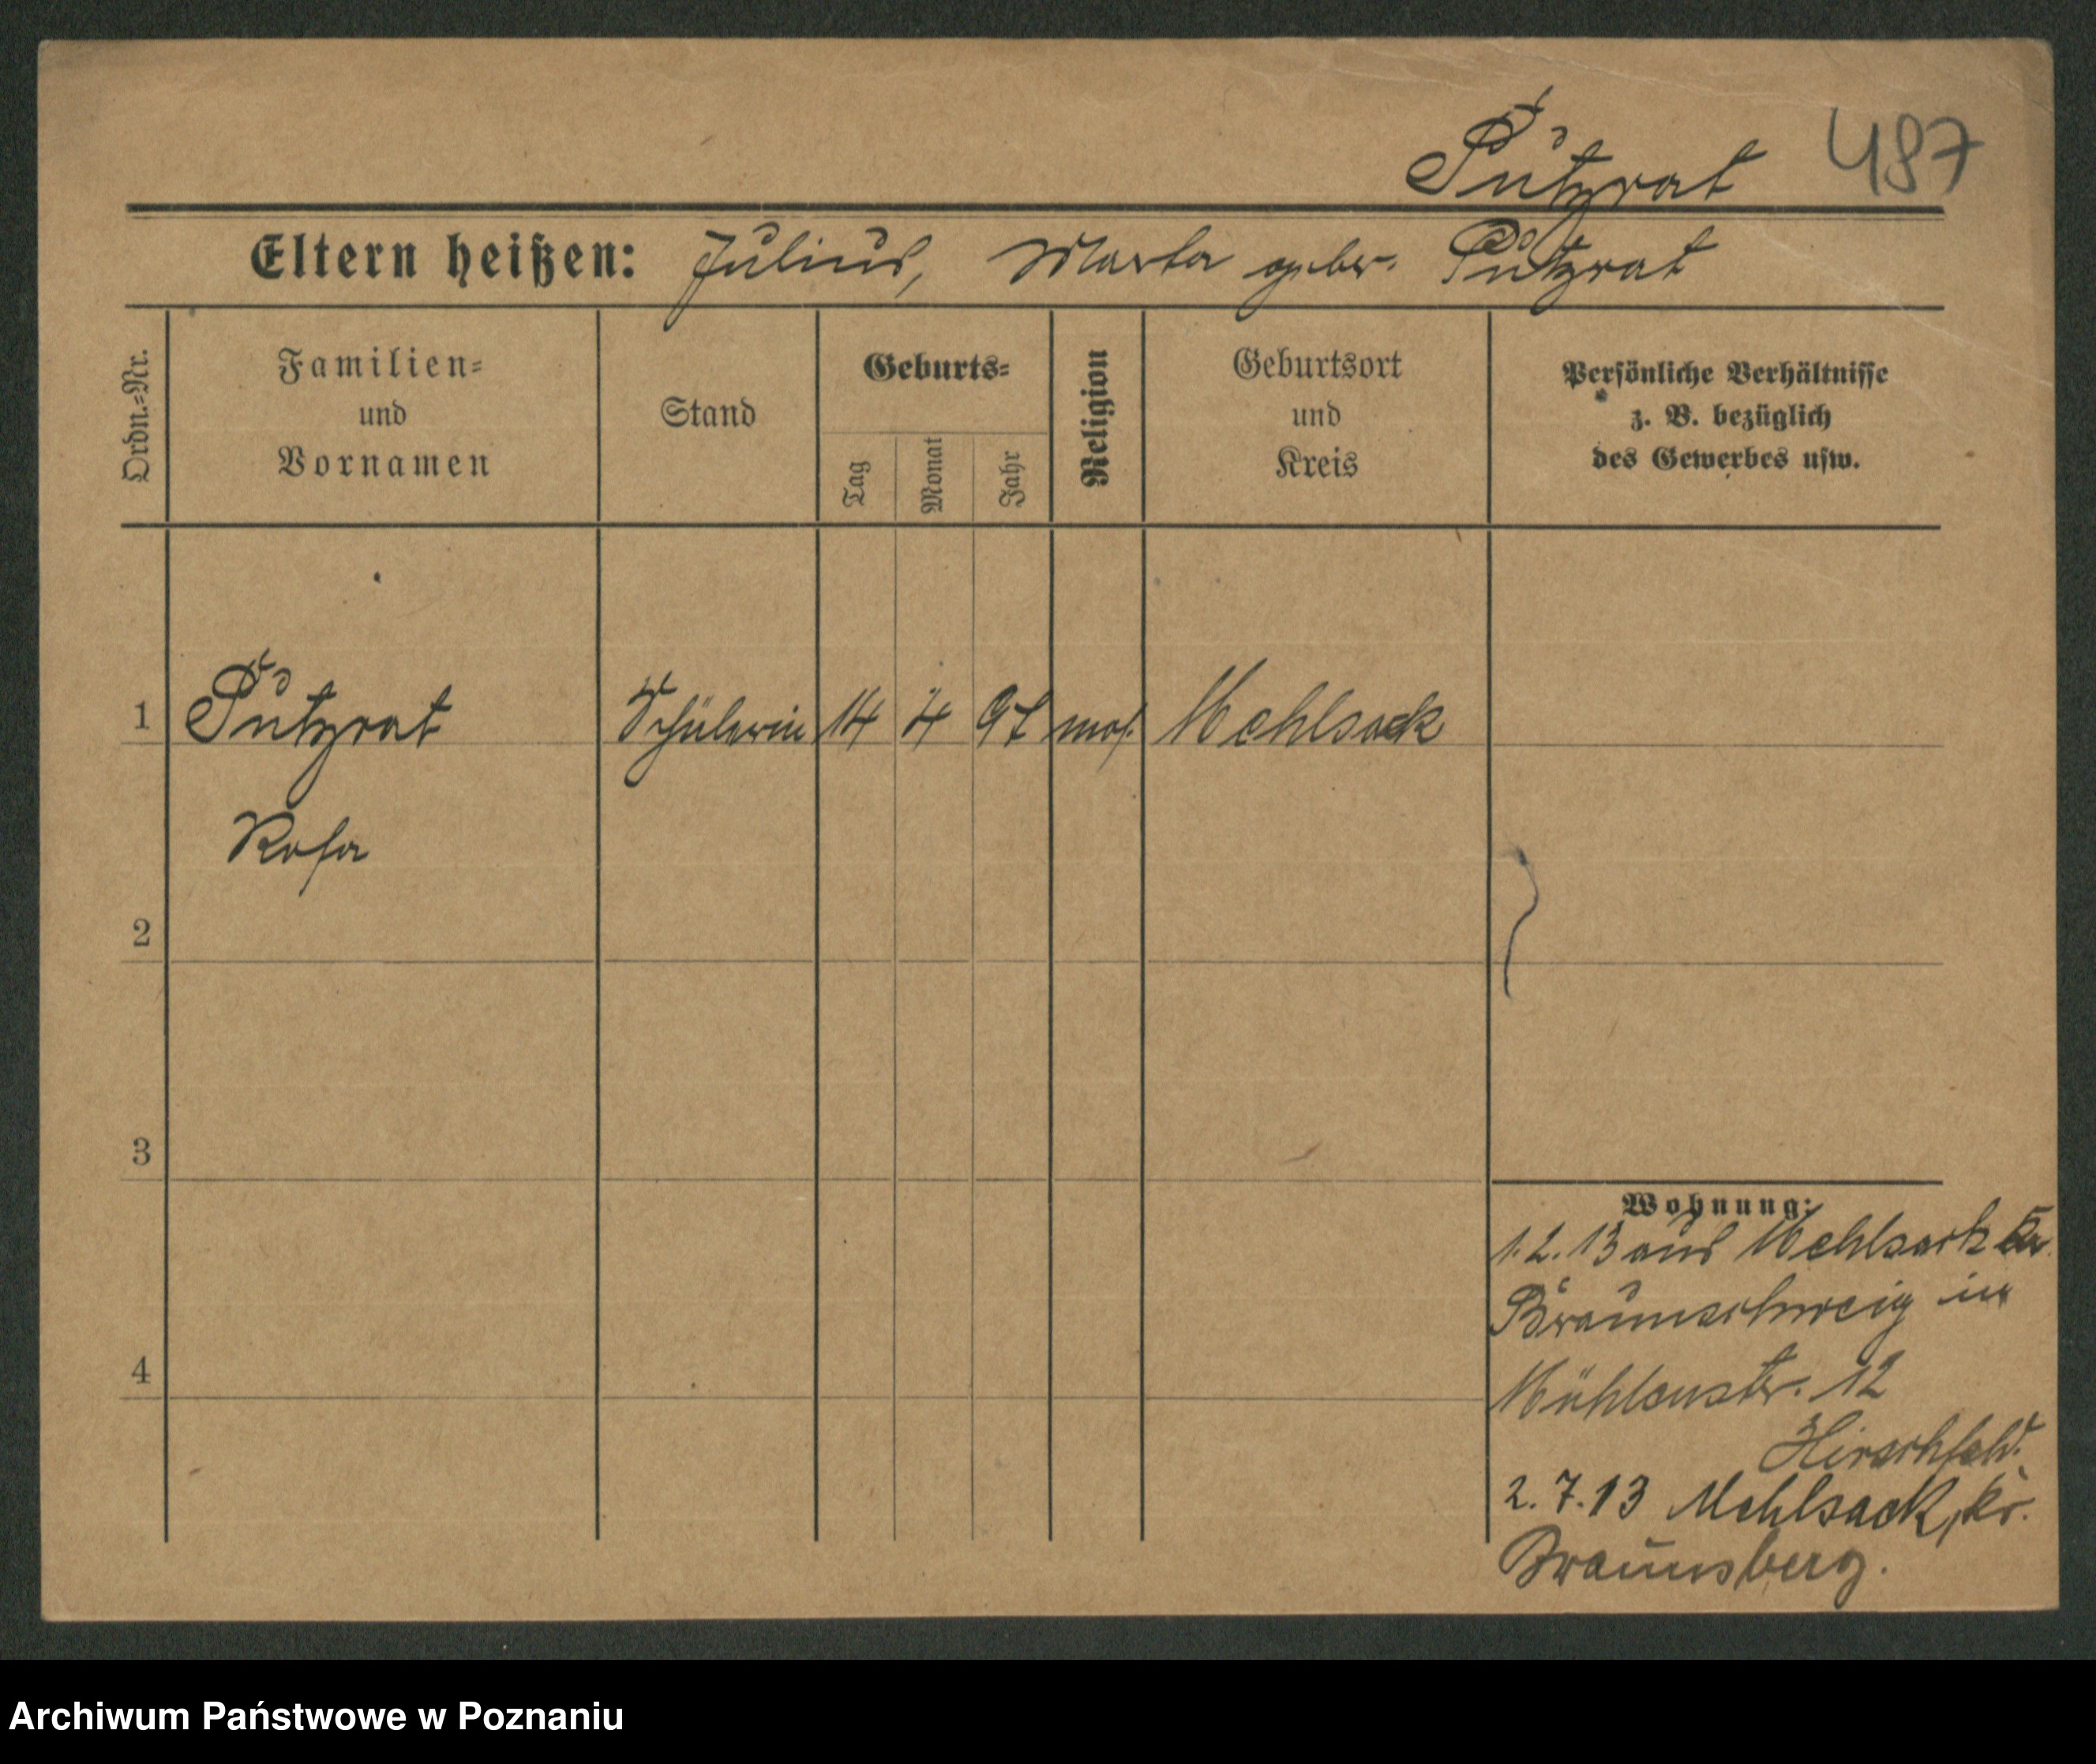 Putzrat 487
Eltern heißen: Julius, Marta gebr. Putzrat
Ordn.=Nr.
Familien=
und
Vornamen
Stand
Geburts=
Tag
Monat
Jahr
Religion
Geburtsort
und
Kreis
Persönliche Verhältnisse
z. B. bezüglich
des Gewerbes usw.
1 Putzrat Schülerin 14 4 97 mos. Mehlsack
Rosa
2
3
4
Wohnung:
1.2.13 aus Mehlsack Kr.
Braunschweig in
Mühlenstr. 12
Hirschfeld.
2.7.13 Mehlsack, Kr.
Braunsberg.
Archiwum Państwowe w Poznaniu